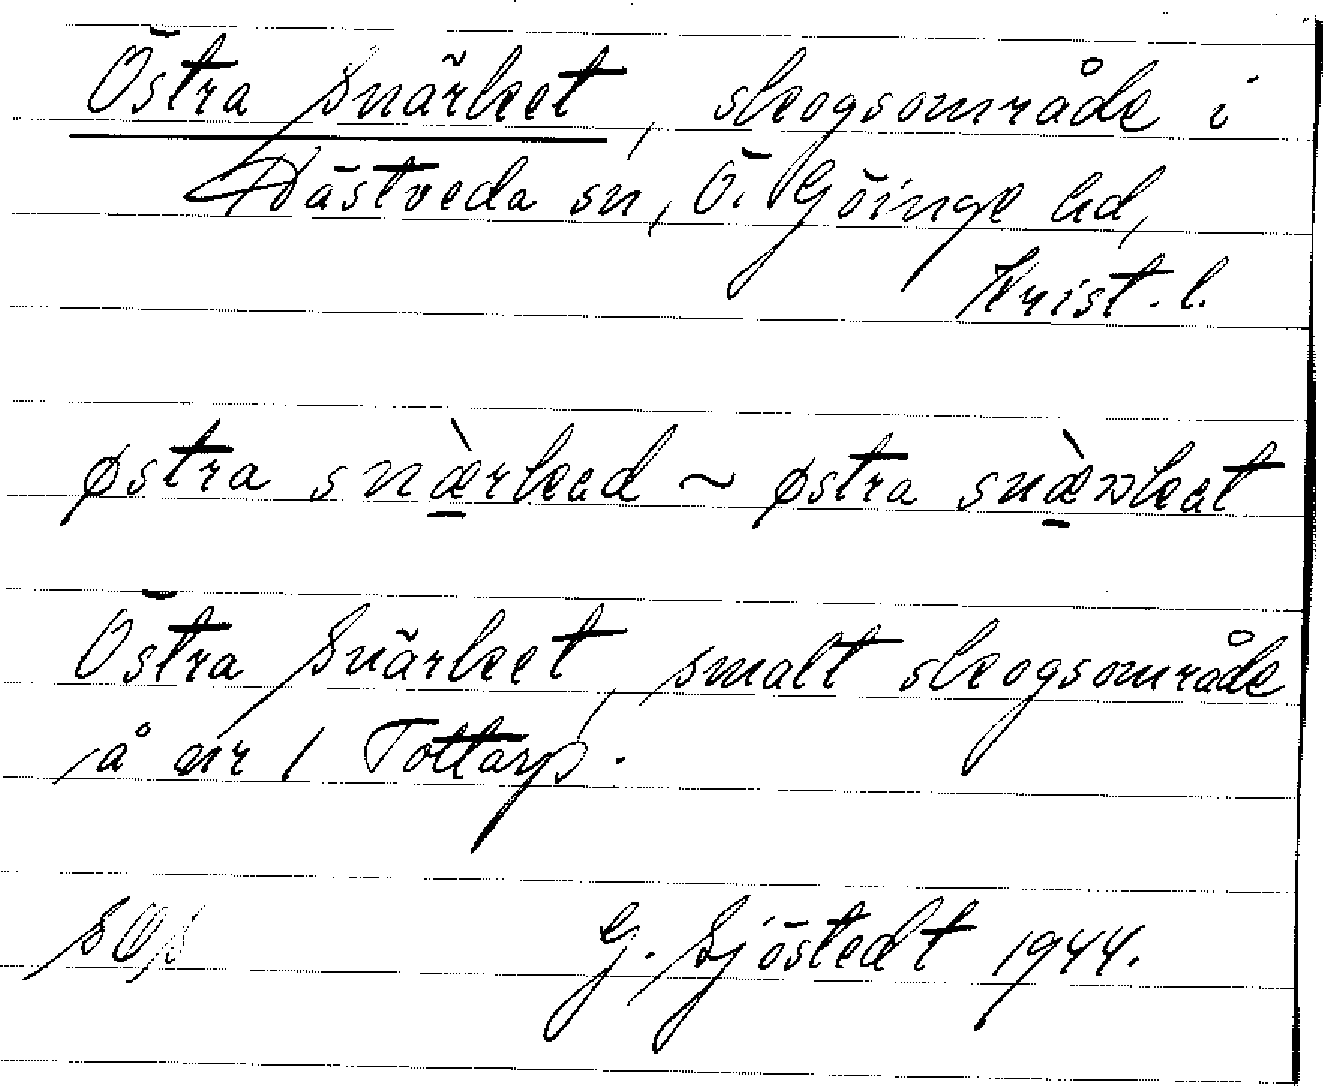 Östra Snärket, skogsområde i
Hästveda sn, Ö. Göinge hd,
Krist. l.
østra snæ̱̀rkəd ~ østra snæ̱̀ʀkət
Östra Snärket, smalt skogsområde
å nr 1 Tottarp.
SOS G. Sjöstedt 1944.